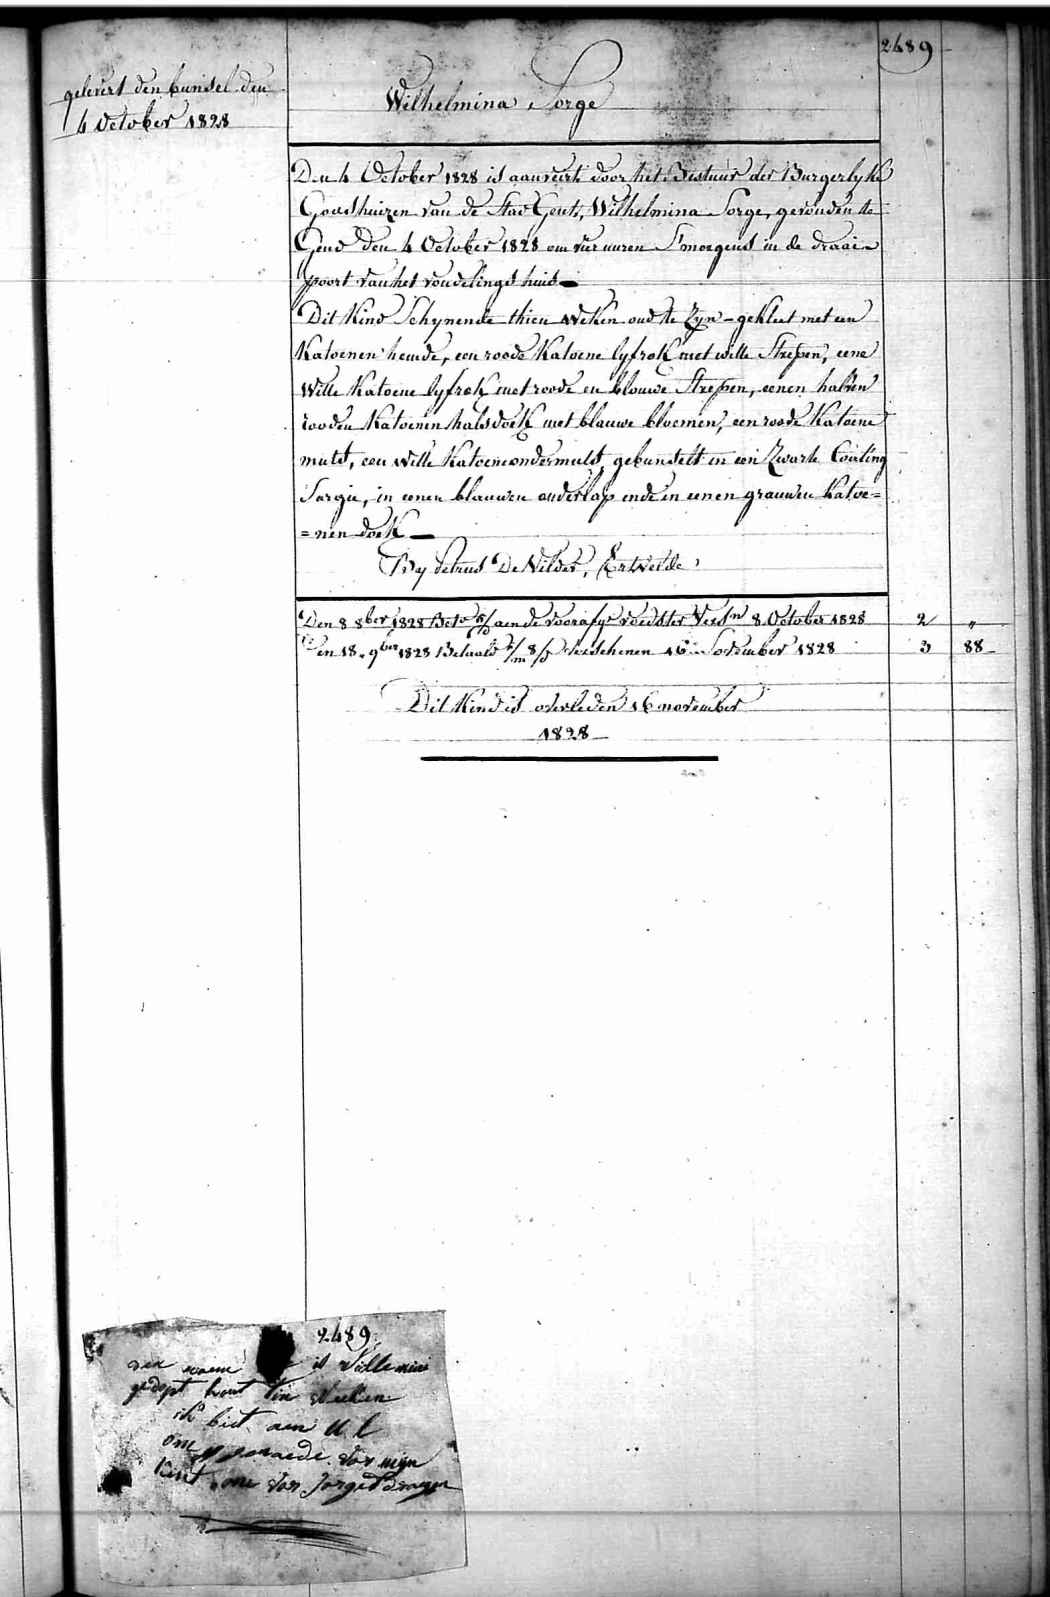 2489
gelevert den bunsel den
4 October 1828
Wilhelmina Sorge
Den 4 October 1828 is aanveirt door het Bestuur der Burgerlyke
Godshuizen van de Stad Gent, Wilhelmina Sorge, gevonden te
Gend den 4 October 1828 om vier uuren S'morgens in de draai-
poort van het vondelings huis
Dit Kind Schynende thien weken oud te Zyn - gekleet met een
Katoenen hemde, een roode Katoene lyfrok met witte Strepen, eene
Witte Katoene lyfrok met roode en blouwe Strepen, eenen halven
rooden Katoenen halsdoek met blauwe bloemen, een roode Katoene
muts, een witte Katoene ondermuts, gebunselt in een Zwarte Coating
Sargie, in eenen blauwen onderlap ende in eenen grauwen Katoe=
=nen doek
By Petrus De Wilder, Ertvelde
Den 8 8ber 1828 Bet. aen de voorafge voedster Versn 8 October 1828 2 "
Den 18 9ber 1828 Betaald verschenen 16 November 1828 3 88
Dit Kind is overleden 16 november
1828
2489
den naem is Willemin
gedopt hout tin weeken
ik bid aen U l
om genaede vor mijn
kint ome vor sorge dragen